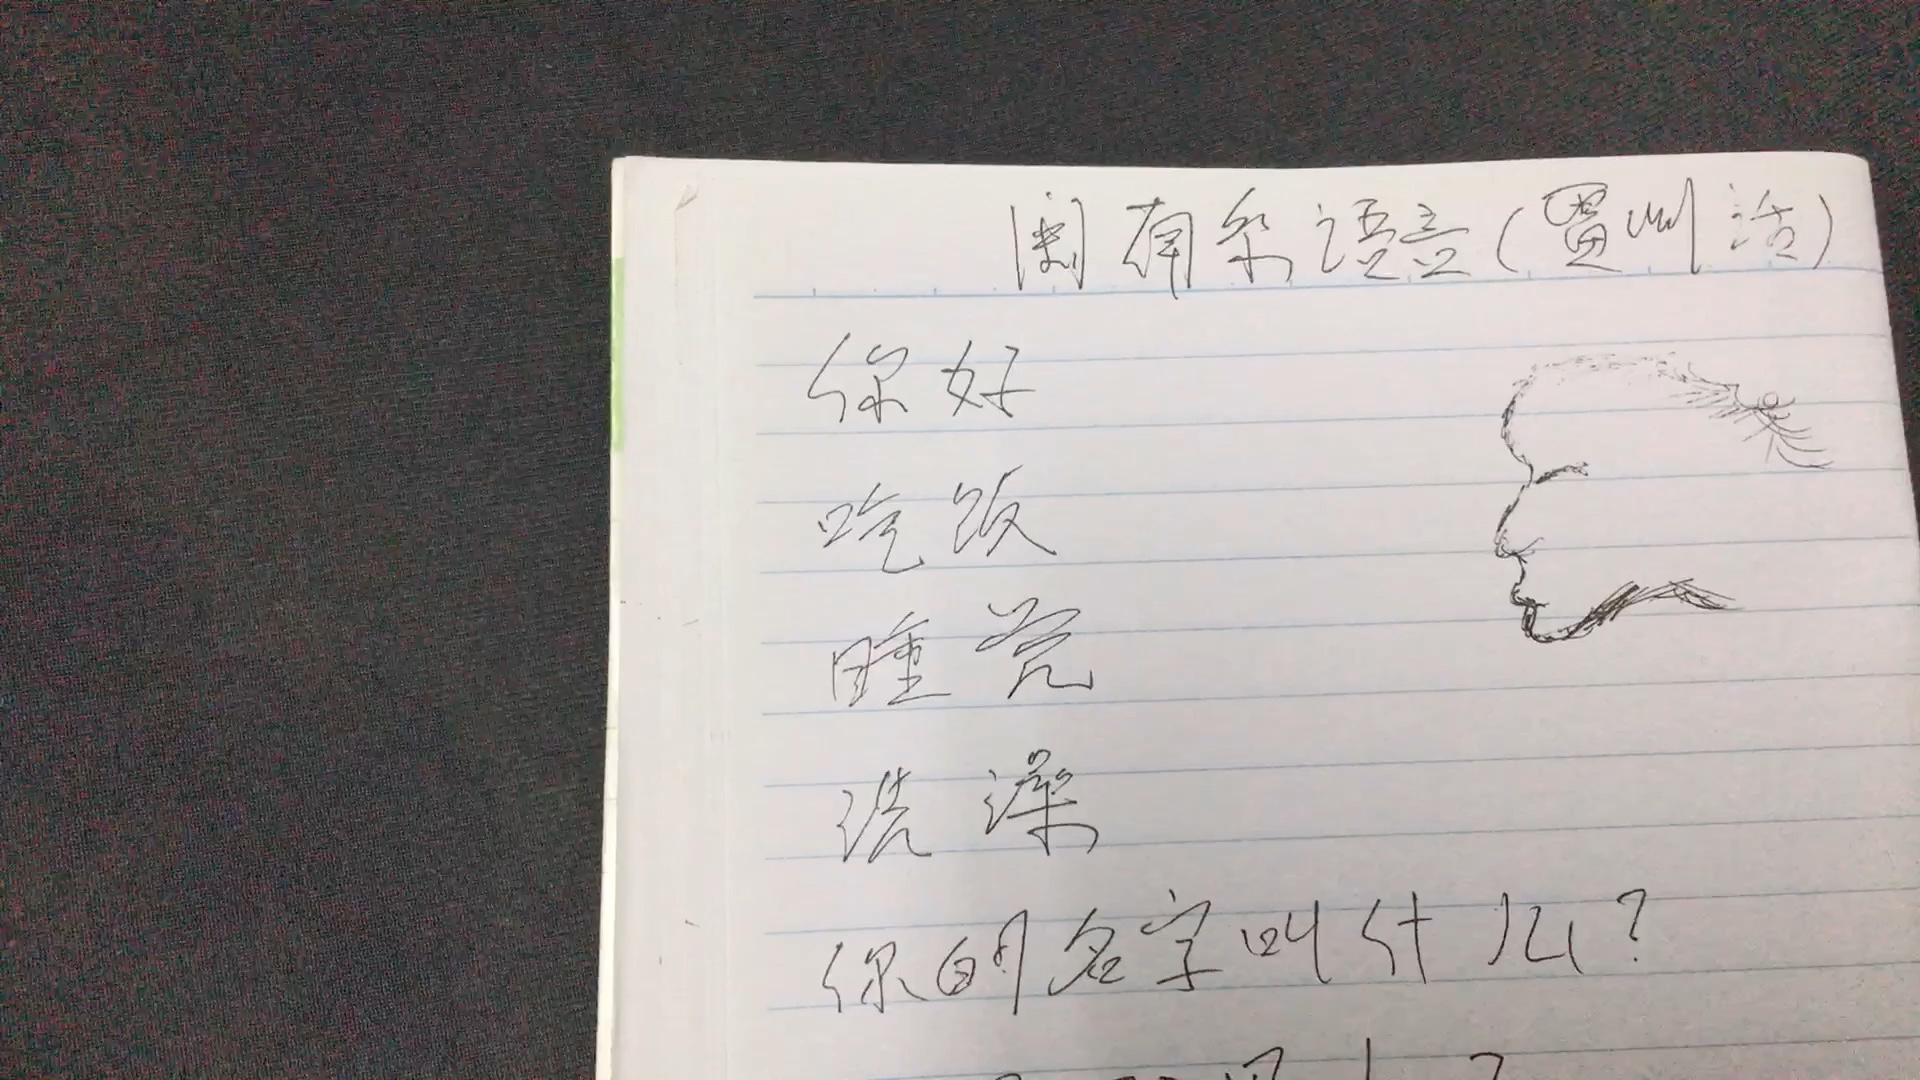 闽南条语言(贵州话)
你好
吃饭
睡觉
洗澡
你的名字叫什么?